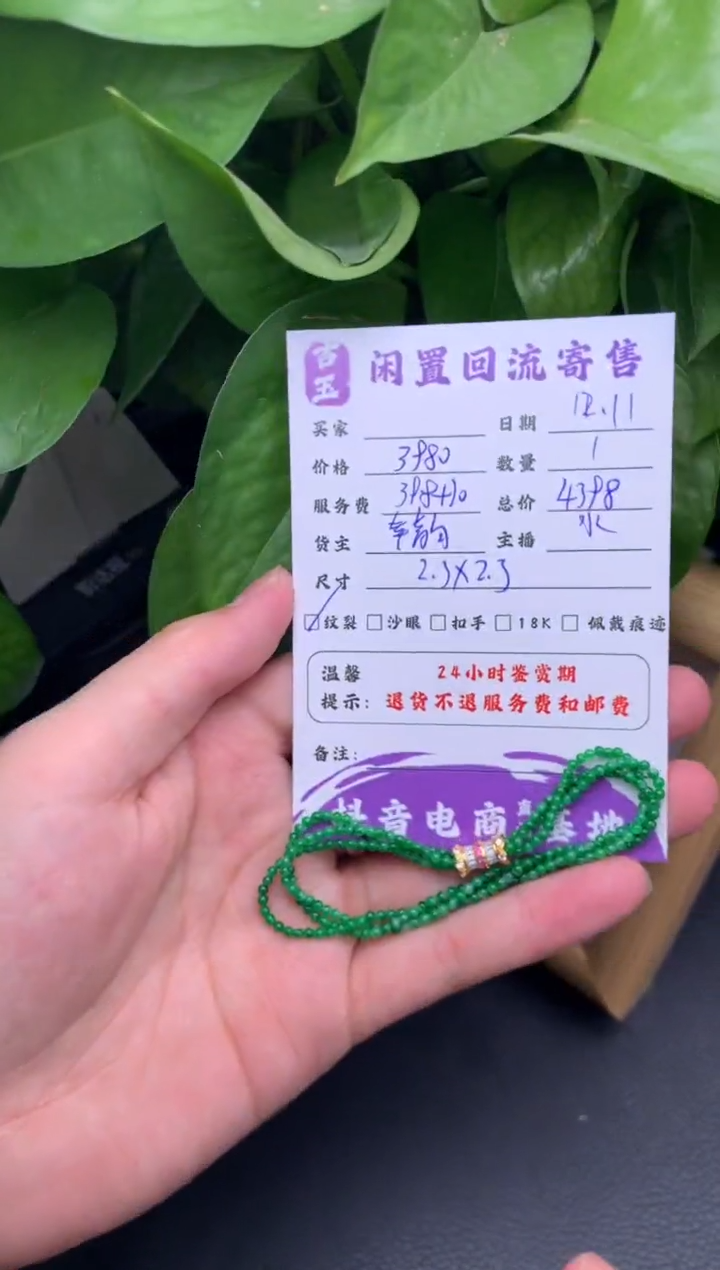 吉玉
闲置回流寄售
买家 日期 12.11
价格 3980 数量 1
服务费 398+10 总价 4398
货主 主播 水
尺寸 2.3X2.3
纹裂 沙眼 扣手 18K 佩戴痕迹
温馨 24小时鉴赏期
提示: 退货不退服务费和邮费
备注:
抖音电商直 基地